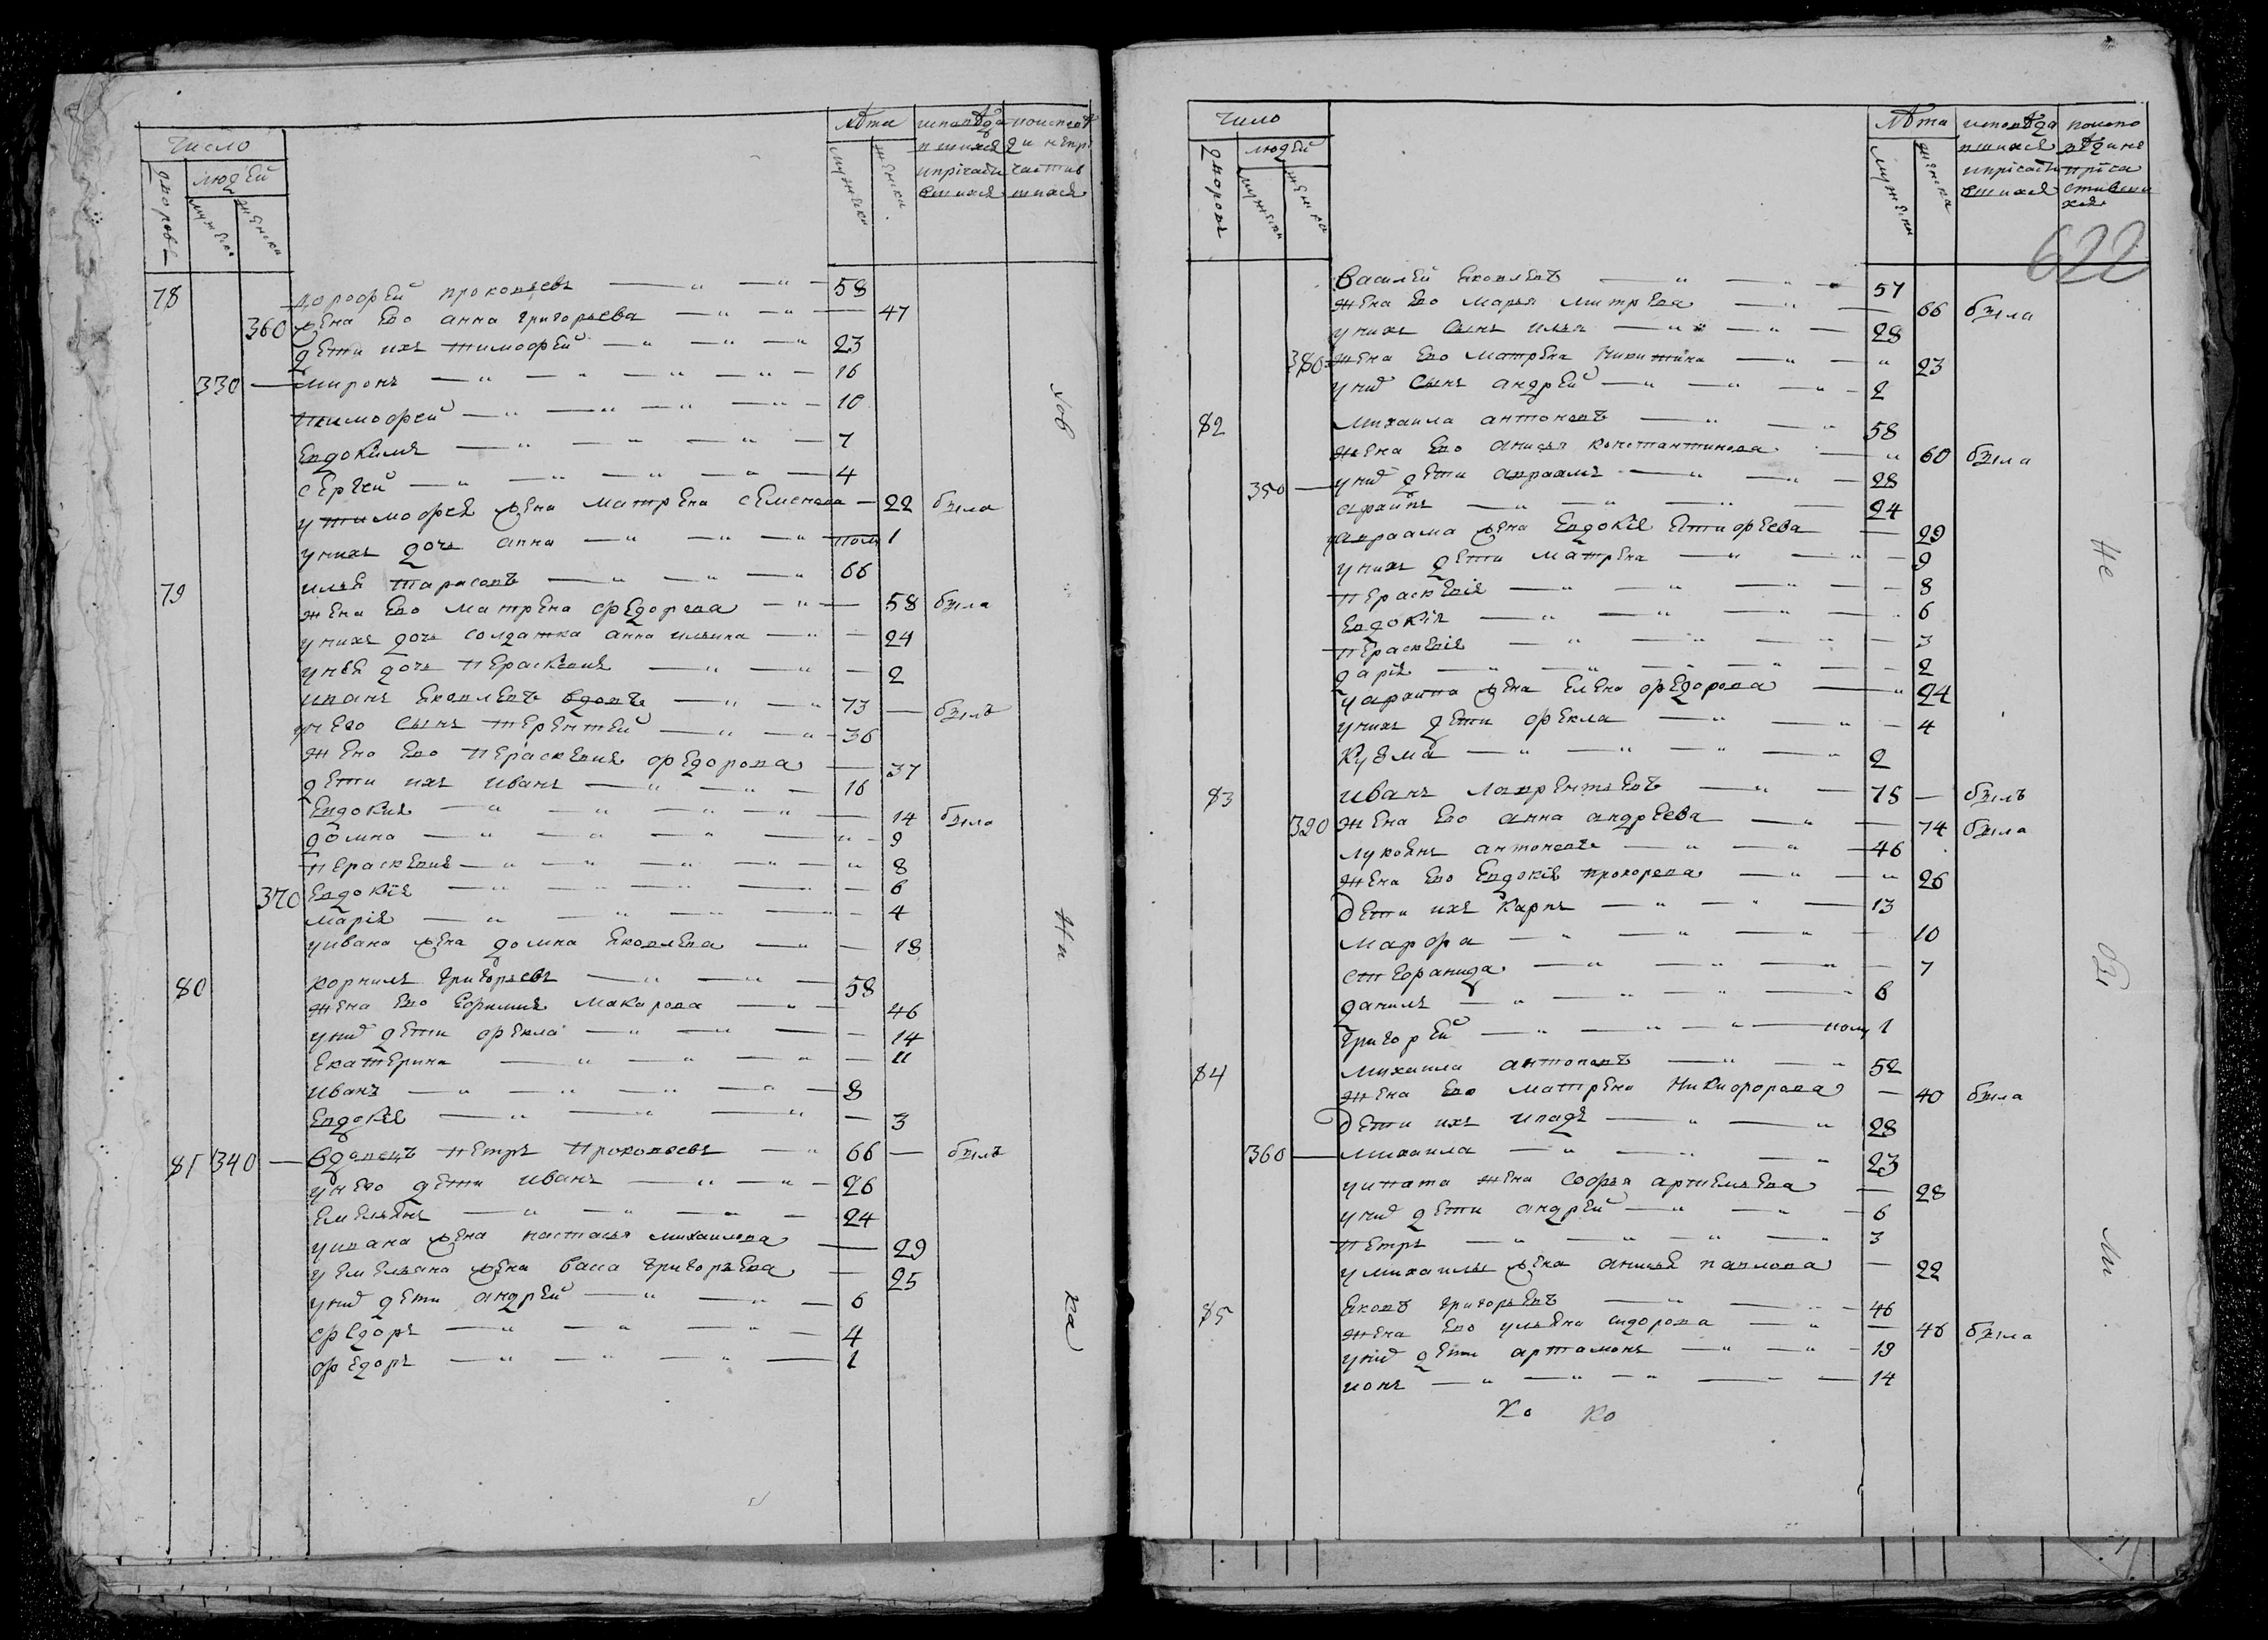 Число
дворовъ
людей
мужеска
женска
Лѣта
мужески
женски
исповѣда
вшихся
ипрічасти
вшихся
78 дорофей прокопьевъ — „ — „ — 58
360 жена ево анна григорьева — „ — „ — 47
дети ихъ тимофей — „ — „ — „ 23
330 — миронъ — „ — „ — „ — „ — 16
тимофей — „ — „ — „ — „ — 10
Евдокимъ — „ — „ — „ — 7
сергей — „ — „ — „ — „ — 4
у тимофея жена матрена семенова — 22 была
унихъ дочь анна — „ — „ — „ полъ 1
79 илья тарасовъ — „ — „ — „ 66
жена ево матрена федорова — „ — 58 была
унихъ дочь солдатка анна ильина — „ — 24
унея дочь перасковия — „ — „ — 2
иванъ яковлевъ вдовъ — „ — „ 73 — былъ
унево сынъ терентей — „ — „ — 36
жена ево перасковия федорова — 37
дети ихъ иванъ — „ — „ — 16
Евдокия — „ — „ — „ — „ — 14 была
домна — „ — „ — „ — „ 9
перасковия — „ — „ — „ — „ — „ 8
370 Евдокія — „ — „ — „ — „ — 6
марія — „ — „ — „ — „ — 4
уивана жена домна яковлева — „ — 18
80 корнилъ григорьевъ — „ — „ — 58
жена ево Ефимия макарова — „ — 46
унид дети фекла — „ — „ — 14
екатерина — „ — „ — „ — 11
иванъ — „ — „ — „ — „ — 8
Евдокея — „ — „ — „ — 3
81 340 — вдовецъ петръ прокопьевъ — „ 66 — былъ
унево дети иванъ — „ — „ — 26
емельянъ — „ — „ — „ — 24
уивана жена настасья михаилова — 29
уемельяна жена васа григорьева — 25
унид дети андрей — „ — „ — 6
федоръ — „ — „ — „ — 4
федоръ — „ — „ — „ — 1
нов
Ни
ка
Число
дворовъ
людей
мужески
женска
Лѣта
мужески
женска
исповѣда
вшихся
ипрісасти
вшихся
622
василей яковлевъ — „ — „ 57
жена ево марья митрева — „ — 66 была
унихъ сынъ илья — „ — „ — 28
380 жена ево матрена никитина — „ — „ 23
унид сынъ андрей — „ — „ — „ — 2
82 михаила антоновъ — „ — „ 58
жена ево анисья константинова — „ 60 была
350 — унид дети авраамъ — „ — „ — 28
афаинъ — „ — „ — „ — 24
уавраама жена Евдокія Етифеева — 29
унихъ дети матрена — „ — „ — 9
перасковія — „ — „ — „ — 8
Евдокія — „ — „ — „ 6
перасковія — „ — „ — „ — 3
дарія — „ — „ — „ — „ — 2
уарапна жена елена федорова — „ 24
унихъ дети фекла — „ — „ — 4
кузма — „ — „ — „ — „ 2
83 иванъ лаврентьевъ — „ — 75 — былъ
390 жена ево анна андреева — „ — 74 была
лукоянъ антоновъ — „ — „ — 46
жена ево Евдокія прохорова — „ — „ 26
дети ихъ карпъ — „ — „ — 13
марфа — „ — „ — „ — 10
стефанида — „ — „ — „ — 7
данилъ — „ — „ — „ — „ 6
григорей — „ — „ — „ — полу 1
84 михаила антоновъ — „ — „ 52
жена ево матрена никифорова — 40 была
дети ихъ ипадъ — „ — „ 28
360 — михаила — „ — „ — „ 23
уипата жена софья артемьева — 28
унид дети андрей — „ — „ — 6
петръ — „ — „ — „ — „ 3
умихаилы жена анисья павлова — 22
85 яковъ григорьевъ — „ — „ — 46
жена ево ульяна сидорова — „ — 46 была
унид дети артамонъ — „ — „ — 19
ионъ — „ — „ — „ — „ — 14
ко ко
Не
бы
ли